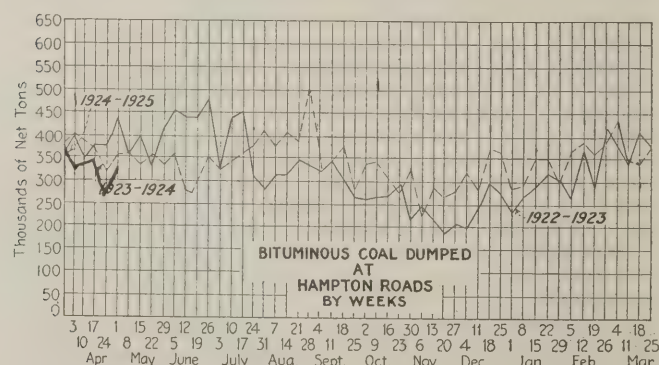 Thousands of Net Tons
650
600
550
500
450
400
350
300
250
200
150
100
50
0
1924-1925
1923-1924
1922-1923
BITUMINOUS COAL DUMPED
AT
HAMPTON ROADS
BY WEEKS
3 17 1 15 29 12 26 10 24 7 21 4 18 2 16 30 13 27 11 25 8 22 5 19 4 18
10 24 8 22 5 19 3 17 31 14 28 11 25 9 23 6 20 4 18 1 15 29 12 26 11 25
Apr May June July Aug Sept Oct Nov Dec Jan Feb Mar